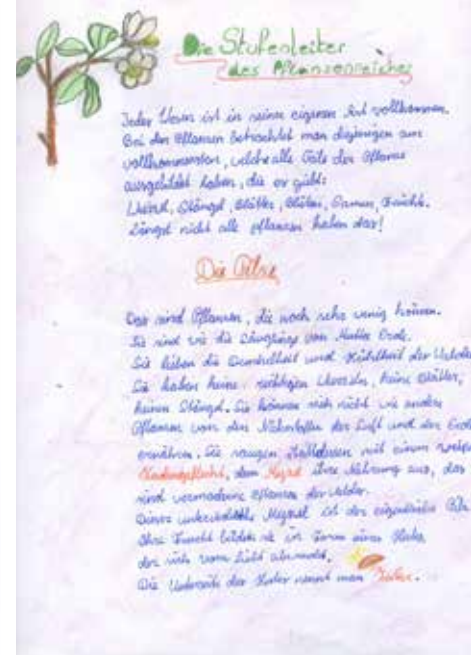 Die Stufenleiter
des Pflanzenreiches
Jedes Wesen ist in seiner eigenen Art vollkommen.
Bei den Pflanzen betrachtet man diejenigen am
vollkommensten, welche alle Teile der Pflanze
ausgebildet haben, die es gibt:
Wurzel, Stängel, Blätter, Blüten, Samen, Früchte.
Längst nicht alle Pflanzen haben das!
Die Pilze
Das sind Pflanzen, die noch sehr wenig können.
Sie sind wie die Säuglinge von Mutter Erde.
Sie lieben die Dunkelheit und Kühlheit der Wälder.
Sie haben keine richtigen Wurzeln, keine Blätter,
keinen Stängel. Sie können sich nicht wie andere
Pflanzen von den Nährstoffen der Luft und der Erde
ernähren. Sie saugen mit einem
dem Myzel ihre Nahrung aus, das
sind vermoderte Pflanzen der Wälder.
Dieses unterirdische ist der eigentliche Pilz.
Ihre Frucht bilden sie in Form eines Hutes,
der sich vom Licht
Die Unterseite der Hüte nennt man